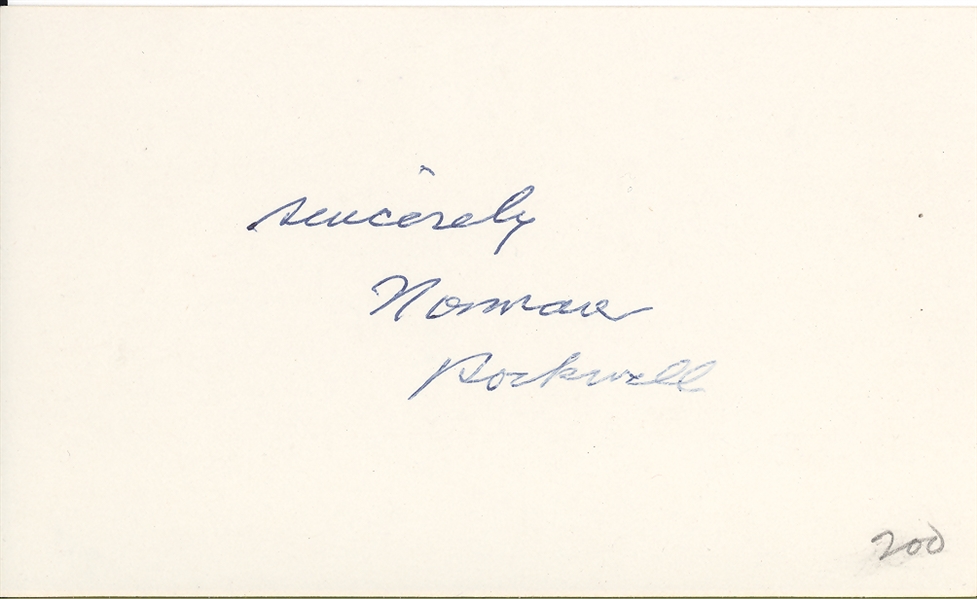 sincerely
Norman
Rockwell
200